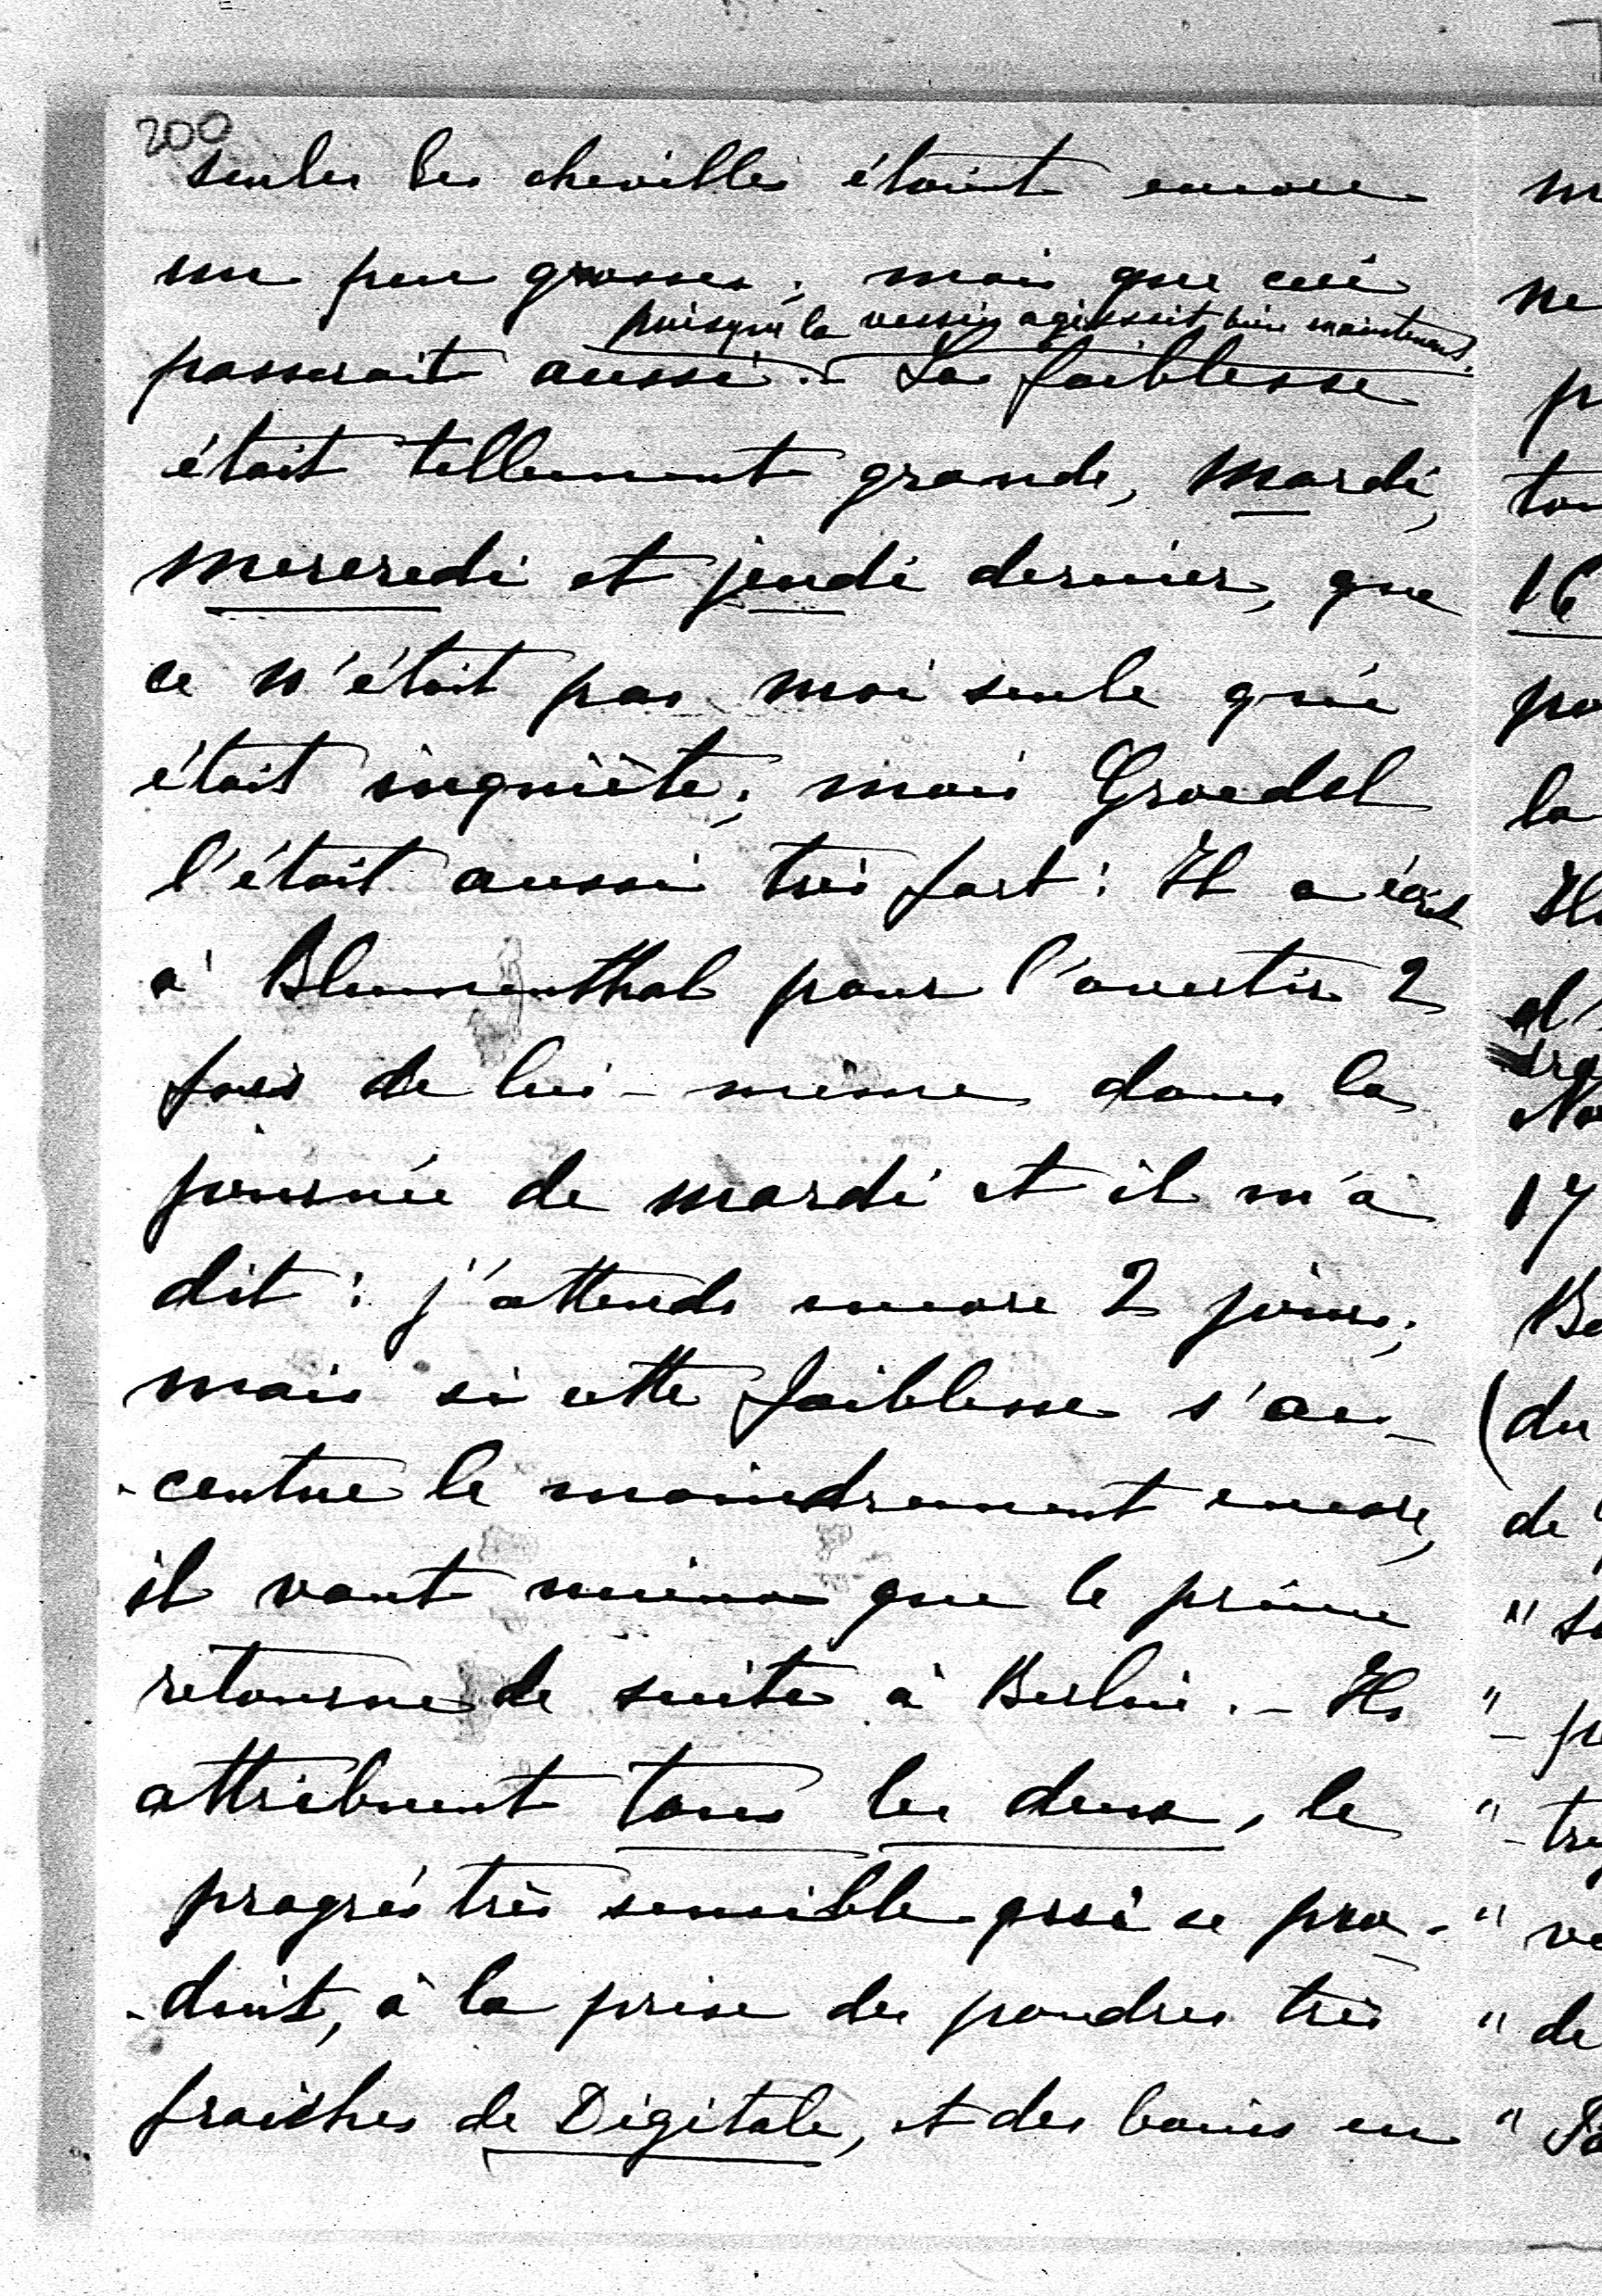 200
seules les chevilles étaient encore
un peu grosses; mais que ceci
puisque la vessie agissait bien maintenant.
passerait aussi. - La faiblesse
était tellement grande, mardi,
mercredi et jeudi dernier, que
ce n'était pas moi seule qui
était inquiète; mais Groedel
l'était aussi très fort: Il a écrit
à Blumenthal pour l'avertir 2
fois de lui-même dans la
journée de mardi et il m'a
dit: j'attends encore 2 jours;
mais si cette faiblesse s'ac-
-centue le moindrement encore,
il vaut mieux que le prince
retourne de suite à Berlin. - Ils
attribuent tous les deux, le
progrès très sensible qui se pro-
-duit, à la prise des poudres très
fraîches de Digitale, et des bains en